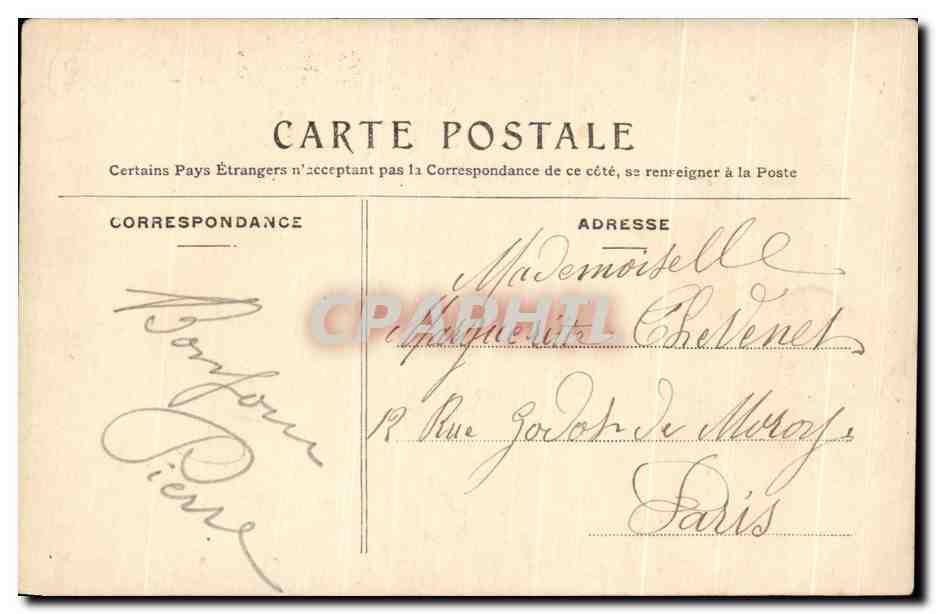 CARTE POSTALE
Certains Pays Étrangers n'acceptant pas la Correspondance de ce côté, se renseigner à la Poste
CORRESPONDANCE
Bonjour
Pierre
ADRESSE
Mademoiselle
Marguerite Chevenet
12 Rue Godot de Moroy
Paris
CPAPHTL